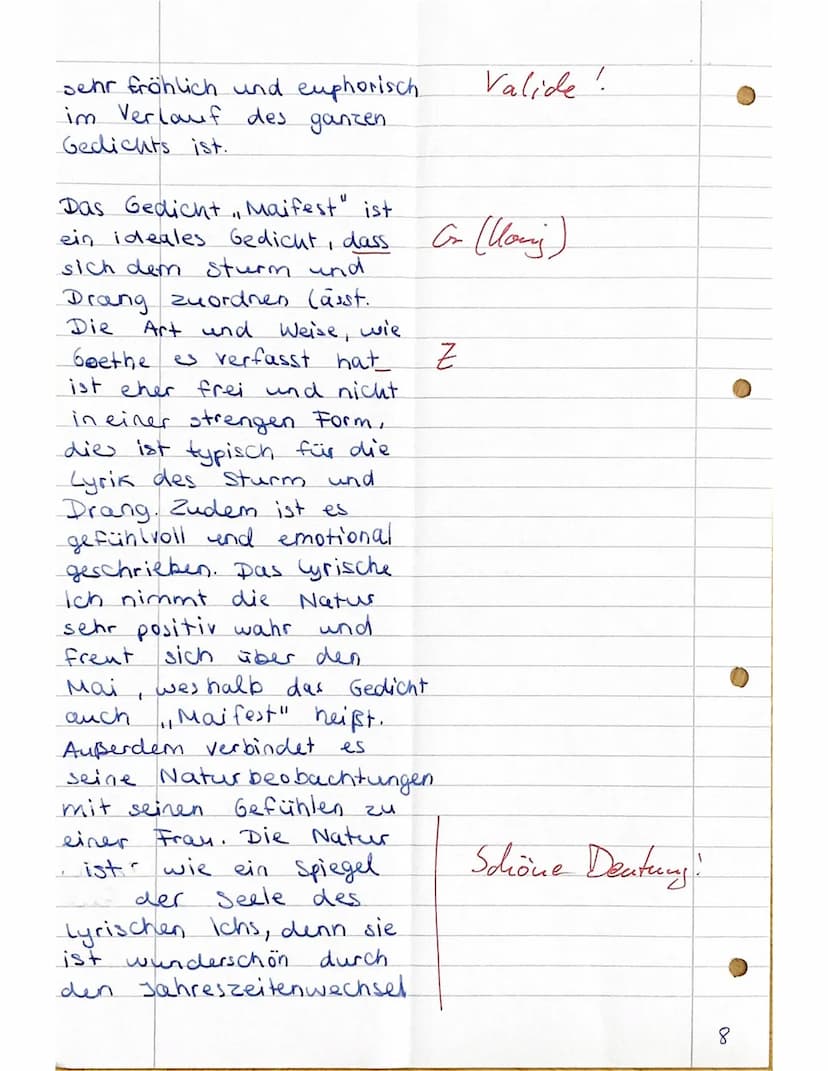 sehr fröhlich und euphorisch Valide!
im Verlauf des ganzen
Gedichts ist.
Das Gedicht „Maifest" ist
ein ideales Gedicht, dass Gr
sich dem Sturm und
Drang zuordnen lässt.
Die Art und Weise, wie
Goethe es verfasst hat_ Z
ist eher frei und nicht
in einer strengen Form,
dies ist typisch für die
Lyrik des Sturm und
Drang. Zudem ist es
gefühlvoll und emotional
geschrieben. Das lyrische
Ich nimmt die Natur
sehr positiv wahr und
freut sich über den
Mai, weshalb das Gedicht
auch „Maifest" heißt.
Außerdem verbindet es
seine Naturbeobachtungen
mit seinen Gefühlen zu
einer Frau. Die Natur
ist wie ein Spiegel Schöne Deutung!
der Seele des
lyrischen Ichs, denn sie
ist wunderschön durch
den Jahreszeitenwechsel
8